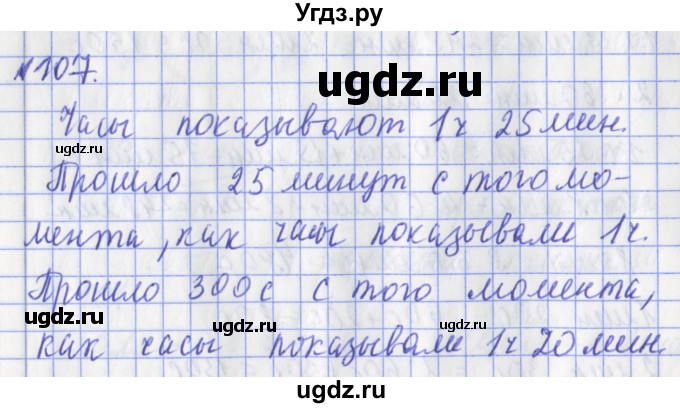 Угдз.ру
№107.
ugdz.ru
Часы показывают 1ч 25мин.
ugdz.ru
Прошло 25 минут с того мо-
мента, как часы показывали 1ч.
Прошло 300с с того момента,
ugdz.ru ugdz.ru ugdz.ru
как часы показывали 1ч 20мин.
ugdz.ru